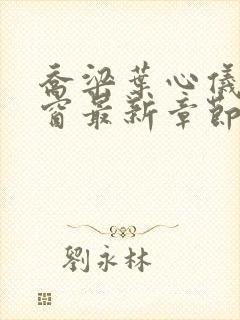 喬梁葉心儀
窗最新章節
劉永林